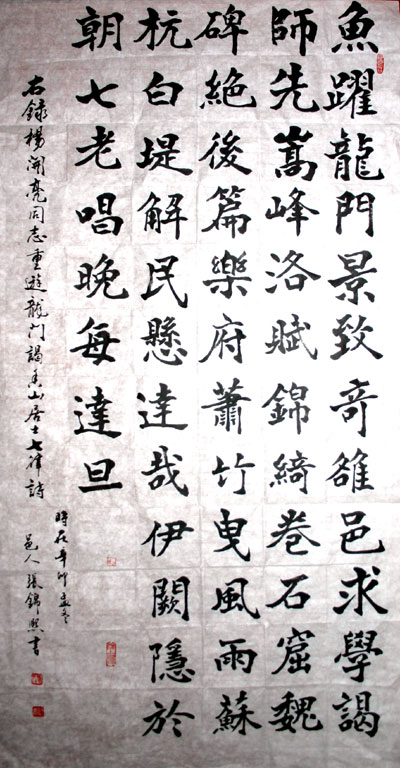 魚躍龍門景致奇雒邑求學謁
師先嵩峰洛賦錦綺卷石窟魏
碑絶後篇樂府蕭竹曳風雨蘇
杭白堤解民懸達哉伊闕隱於
朝七老唱晚每達旦
右録楊開亮同志重遊龍门謁香山居士七律詩
時在辛卯孟冬
邑人張錦熙書